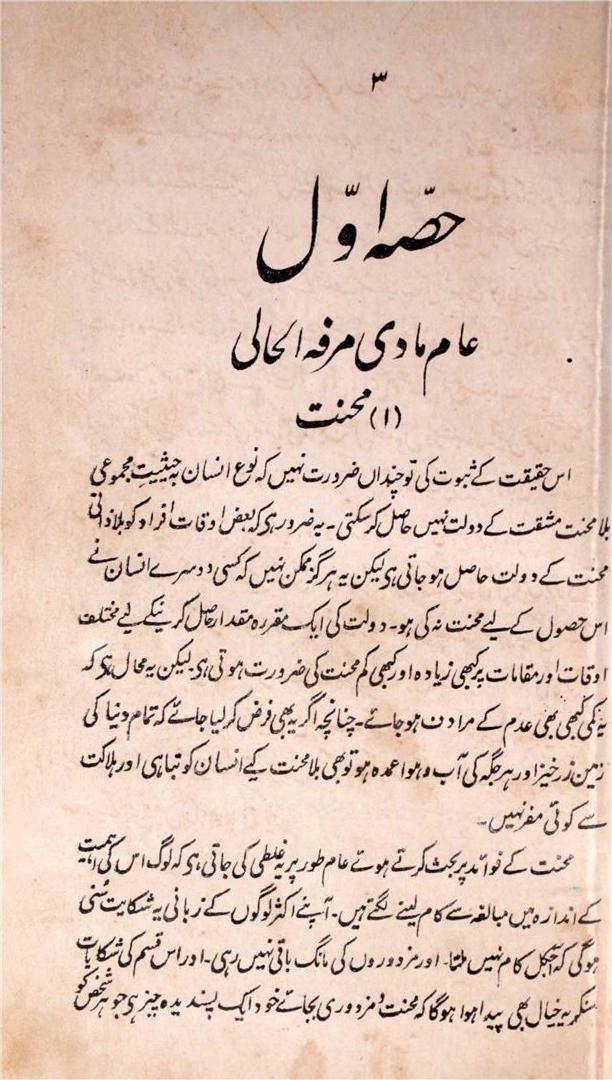 ۳
حصّہ اوّل
عام مادی مرفہ الحالی
(۱) محنت
اس حقیقت کے ثبوت کی تو چنداں ضرورت نہیں کہ نوع انسان بہ حیثیت مجموعی
بلا محنت مشقت کے دولت نہیں حاصل کرسکتی۔ یہ ضرور ہی کہ بعض اوقات افراد کو بلا ذاتی
محنت کے دولت حاصل ہوجاتی ہی لیکن یہ ہرگز ممکن نہیں کہ کسی دوسرے انسان نے
اس حصول کے لیے محنت نہ کی ہو۔ دولت کی ایک مقررہ مقدار حاصل کرنیکے لیے مختلف
اوقات اور مقامات پر کبھی زیادہ اور کبھی کم محنت کی ضرورت ہوتی ہی۔ لیکن یہ محال ہی کہ
یہ کمی کبھی بھی عدم کے مرادف ہوجائے۔ چنانچہ اگر یہ بھی فرض کرلیا جائے کہ تمام دنیا کی
زمین زرخیز اور ہر جگہ کی آب و ہوا عمدہ ہو تو بھی بلا محنت کیے انسان کو تباہی اور ہلاکت
سے کوئی مفر نہیں۔
محنت کے فوائد پر بحث کرتے ہوئے عام طور پر یہ غلطی کی جاتی ہی کہ لوگ اس کی اہمیت
کے اندازہ میں مبالغہ سے کام لینے لگتے ہیں۔ آپنے اکثر لوگوں کے زبانی یہ شکایت سُنی
ہوگی کہ آجکل کام نہیں ملتا۔ اور مزدوروں کی مانگ باقی نہیں رہی۔ اور اس قسم کی شکایات
سنکر یہ خیال بھی پیدا ہوا ہوگا کہ محنت و مزدوری بجائے خود ایک پسندیدہ چیز ہی جو ہر شخص کو